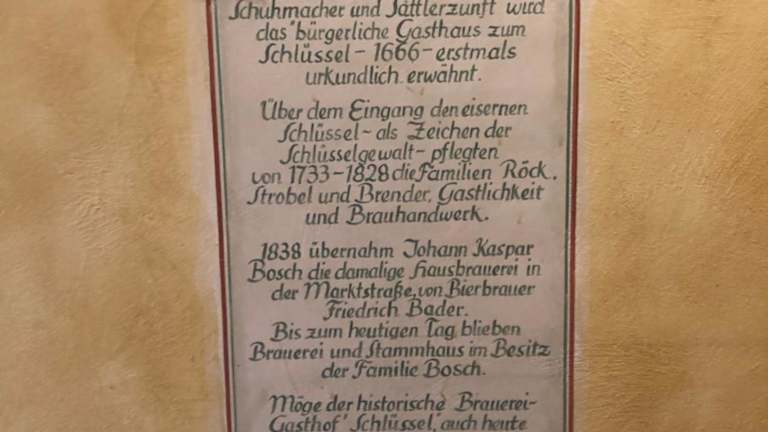 Schuhmacher und Sattlerzunft wird
das "bürgerliche Gasthaus zum
Schlüssel - 1666 - erstmals
urkundlich erwähnt.
Über dem Eingang den eisernen
Schlüssel - als Zeichen der
Schlüsselgewalt - pflegten
von 1733 - 1828 die Familien Röck.
Strobel und Brender, Gastlichkeit
und Brauhandwerk.
1838 übernahm Johann Kaspar
Bosch die damalige Hausbrauerei in
der Marktstraße, von Bierbrauer
Friedrich Bader.
Bis zum heutigen Tag blieben
Brauerei und Stammhaus im Besitz
der Familie Bosch.
Möge der historische Brauerei-
Gasthof 'Schlüssel,' auch heute